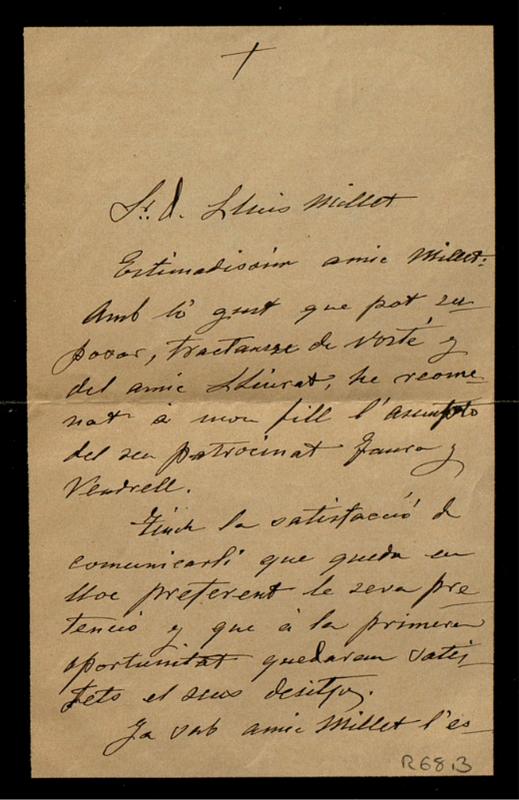 +
Sr. D. Lluis Millet
Estimadissim amic Millet:
Amb lo gust que pot su-
posar, tractanse de Vosté y
del amic Lliurat, he recome-
nat á mon fill l'assumpto
del seu patrocinat Faura y
Vendrell.
Tinch la satisfacció de
comunicarli que queda en
lloc preferent la seva pre-
tenció y que á la primera
oportunitat quedaran satis-
fets el seus desitjos.
Ja sab amic Millet l'es-
R68.B